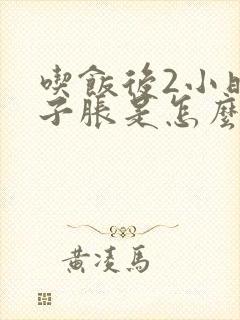 喫飯後2小時
子脹是怎麼
黃凌馬